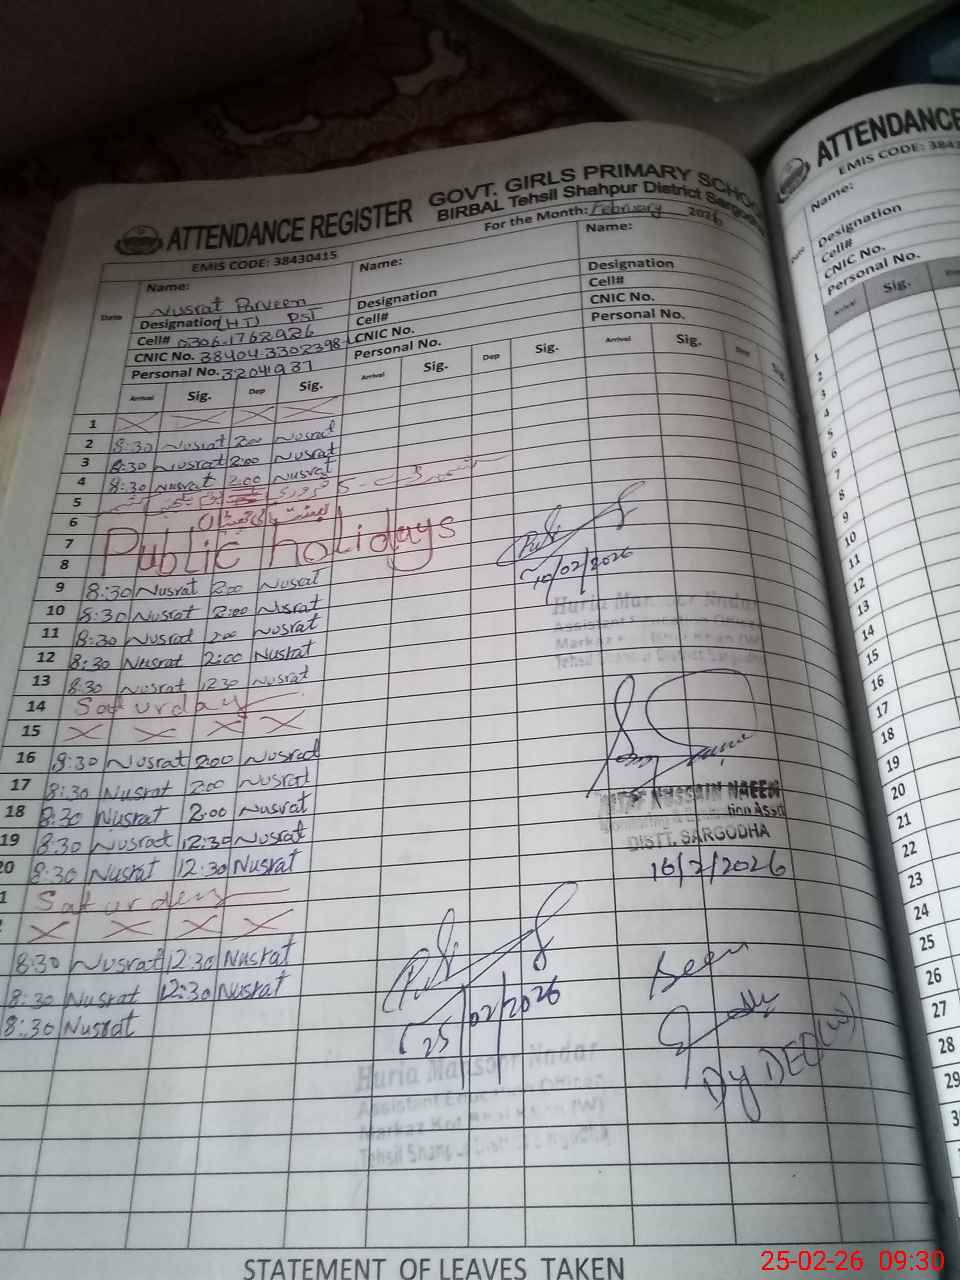 ATTENDANCE REGISTER
GOVT. GIRLS PRIMARY SCHOOL
BIRBAL Tehsil Shahpur District Sargod
EMIS CODE: 38430415
For the Month: February 2026
Date
Name: Nusrat Parveen
Designation (HT) PST
Cell# 0306-1762926
CNIC No. 38404-3302398-
Personal No. 32041937
Name:
Designation
Cell#
CNIC No.
Personal No.
Name:
Designation
Cell#
CNIC No.
Personal No.
Arrival Sig. Dep Sig. Arrival Sig. Dep Sig. Arrival Sig. Dep
1
2 8:30 Nusrat 2:00 Nusrat
3 8:30 Nusrat 2:00 Nusrat
4 8:30 Nusrat 2:00 Nusrat
5
6
7 Public holidays
8
9 8:30 Nusrat 2:00 Nusrat
10 8:30 Nusrat 2:00 Nusrat
11 8:30 Nusrat 2:00 Nusrat
12 8:30 Nusrat 2:00 Nusrat
13 8:30 Nusrat 12:30 Nusrat
14 Saturday
15
16 8:30 Nusrat 2:00 Nusrat
17 8:30 Nusrat 2:00 Nusrat
18 8:30 Nusrat 2:00 Nusrat
19 8:30 Nusrat 12:30 Nusrat
20 8:30 Nusrat 12:30 Nusrat
1 Saturday
8:30 Nusrat 12:30 Nusrat
8:30 Nusrat 12:30 Nusrat
8:30 Nusrat
10/02/2026
Huria Mansoor Nadar
Assistant Education Officer
Tehsil Shahpur District Sargodha
HUSSAIN NAEEM
DISTT. SARGODHA
16/2/2026
25/02/2026
Huria Mansoor Nadar
Assistant Education Officer
Tehsil Shahpur District Sargodha
Seen
Dy DEO(W)
STATEMENT OF LEAVES TAKEN
ATTENDANCE
EMIS CODE: 3843
Date
Name:
Designation
Cell#
CNIC No.
Personal No.
Arrival Sig.
1
2
3
4
5
6
7
8
9
10
11
12
13
14
15
16
17
18
19
20
21
22
23
24
25
26
27
28
29
25-02-26 09:30